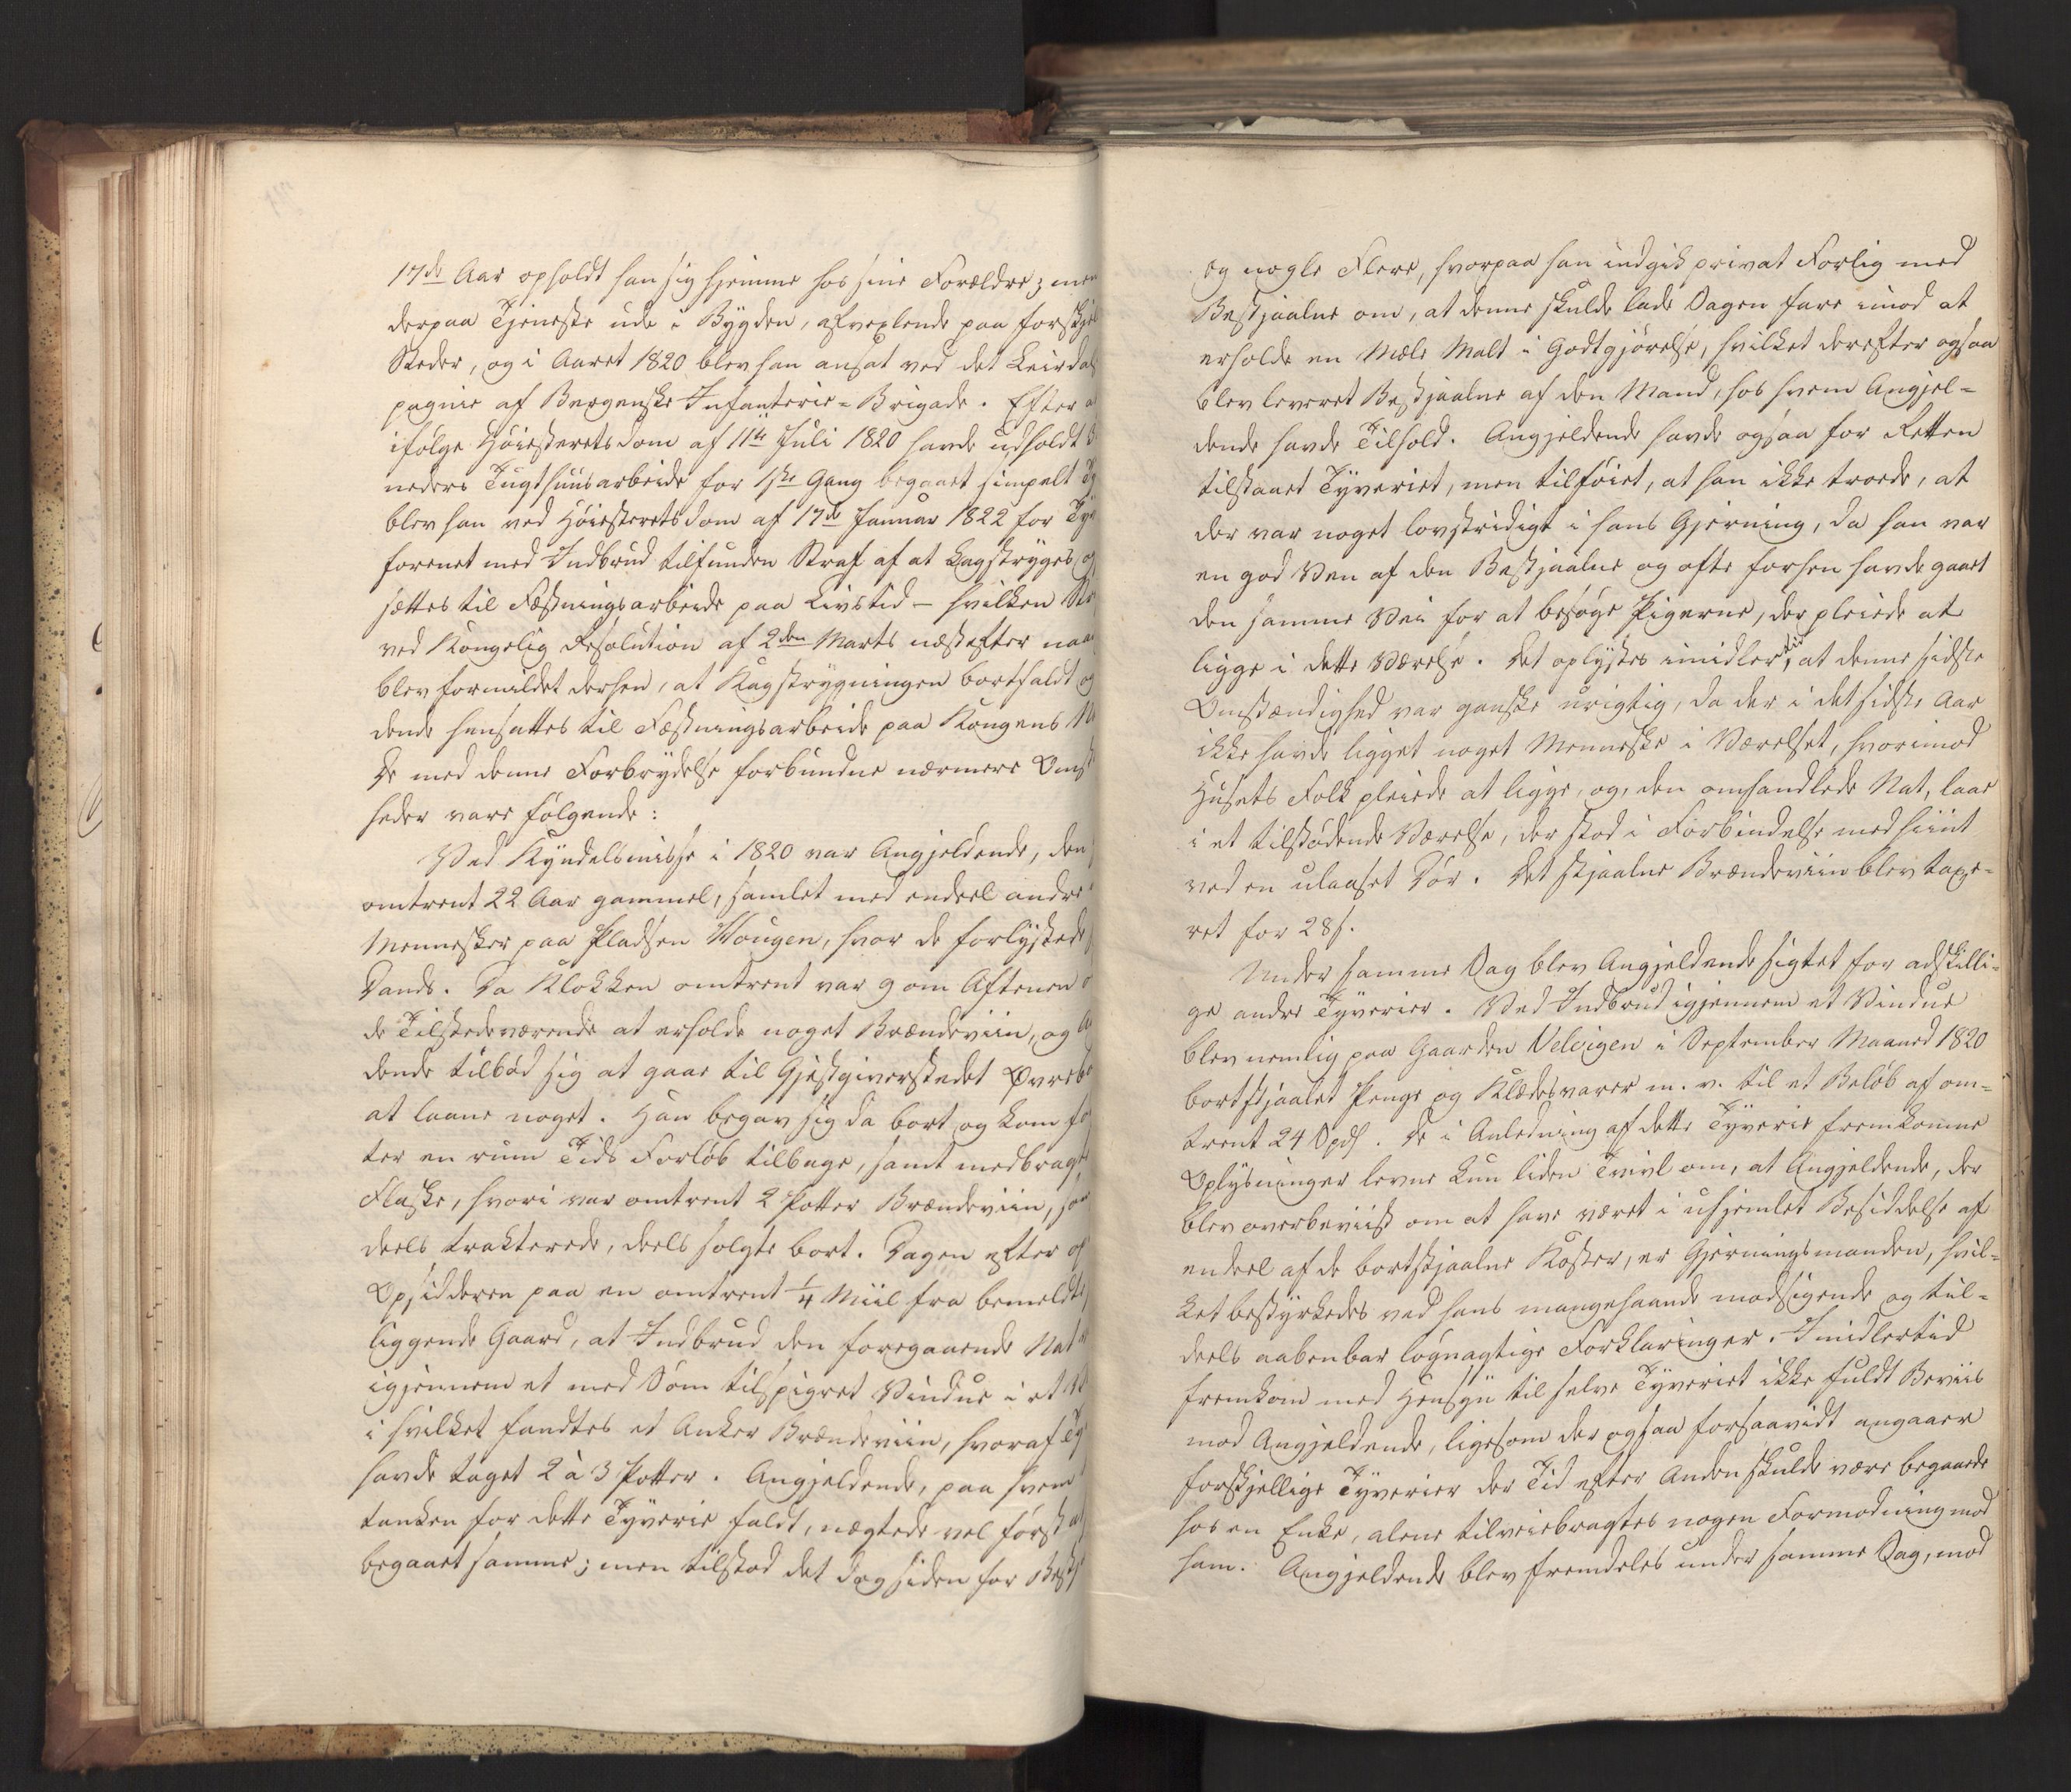 17de Aar opholdt han sig hjemme hos sine Forældre; men
derpaa Tjeneste ude i Bygden, afvexlende paa forskjel
Steder, og i Aaret 1820 blev han ansat ved det Leirdals
pagnie af Bergenske Infanterie-Brigade. Efter a
ifølge Høiesteretsdom af 11te Juli 1820 havde udholdt
neders Tugthuusarbeide for 1ste Gang begaaet simpelt Ty
blev han ved Høiesteretsdom af 17de Januar 1822 for Tyv
forenet med Indbrud tilfunden Straf af at Kagstryges og
sættes til Fæstningsarbeide paa Livstid – hvilken Str
ved Kongelig Resolution af 2den Marts næstefter naa
blev formildet derhen, at Kagstrygningen bortfaldt og
dende hensattes til Fæstningsarbeide paa Kongens N
De med denne Forbrydelse forbundne nærmere Omst
heder vare følgende:
Ved Kyndelsmisse i 1820 var Angjeldende, den
omtrent 22 Aar gammel, samlet med endeel andre
Mennesker paa Pladsen Hougen, hvor de forlystede
Dands. Da Klokken omtrent var 9 om Aftenen
de Tilstedeværende at erholde noget Brændeviin, og An
dende tilbød sig at gaae til Gjestgiverstedet Øvrebø
at laane noget. Han begav sig da bort og kom
ter en rum Tids Forløb tilbage, samt medbragte
Flaske, hvori var omtrent 2 Potter Brændeviin, som
deels trakterede, deels solgte bort. Dagen efter op
Opsidderen paa en omtrent 1/4 Miil fra bemeldte
liggende Gaard, at Indbrud den foregaaende Nat
igjennem et med Søm tilspigret Vindue i et
i hvilket fandtes et Anker Brændeviin, hvoraf Ty
havde taget 2 à 3 Potter. Angjeldende, paa hvem
tanken for dette Tyverie faldt, nægtede vel først at
begaaet samme; men tilstod det dog siden for Bestj
og nogle Flere, hvorpaa han indgik privat Forlig med
Bestjaalne om, at denne skulde lade Sagen fare imod at
erholde en Mæle Malt i Godtgjørelse, hvilket derefter ogsaa
blev leveret Bestjaalne af den Mand, hos hvem Angjel-
dende havde Tilhold. Angjeldende havde ogsaa for Retten
tilstaaet Tyveriet, men tilføiet, at han ikke troede, at
der var noget lovstridigt i hans Gjerning, da han var
en god Ven af den Bestjaalne og ofte forhen havde gaaet
den samme Vei for at besøge Pigerne, der pleiede at
ligge i dette Værelse. Det oplystes imidlertid, at denne sidste
Omstændighed var ganske urigtig, da der i det sidste Aar
ikke havde ligget noget Menneske i Værelset, hvorimod
Husets Folk pleiede at ligge, og, den omhandlede Nat, laae
i et tilstødende Værelse, der stod i Forbindelse med hiint
ved en ulaaset Dør. Det stjaalne Brændeviin blev taxe-
ret for 28 s.
Under samme Sag blev Angjeldende sigtet for adskilli-
ge andre Tyverier. Ved Indbrud igjennem et Vindue
blev nemlig paa Gaarden Velvigen i September Maaned 1820
bortstjaalet Penge og Klædesvarer m. v. til et Beløb af om-
trent 24 Spd. De i Anledning af dette Tyverie fremkomne
Oplysninger levne kun liden Tvivl om, at Angjeldende, der
blev overbeviist om at have været i uhjemlet Besiddelse af
endeel af de bortstjaalne Koster, er Gjerningsmanden, hvil-
ket bestyrkedes ved hans mangehaande modsigende og til-
deels aabenbar løgnagtige Forklaringer. Imidlertid
fremkom med Hensyn til selve Tyveriet ikke fuldt Beviis
mod Angjeldende, ligesom der ogsaa forsaavidt angaaer
forskjellige Tyverier der Tid efter Anden skulde være begaaede
hos en Enke, alene tilveiebragtes nogen Formodning mod
ham. Angjeldende blev fremdeles under samme Sag, mod